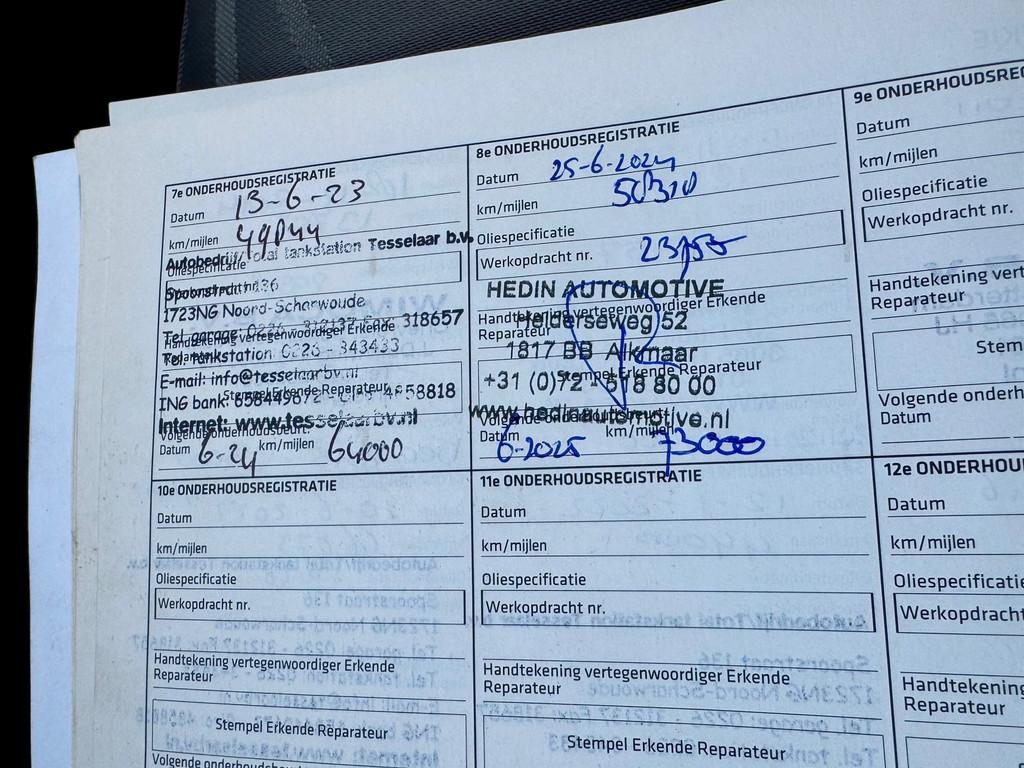 7e ONDERHOUDSREGISTRATIE
Datum 13-6-23
km/mijlen
Autobedrijf/Total tankstation Tesselaar b.v.
Oliespecificatie
Spoorstraat 136
Werkopdracht nr.
1723NG Noord-Scharwoude
Tel. garage: 0226 - 312137 Fax: 318657
Handtekening vertegenwoordiger Erkende
Reparateur
Tel. tankstation 0226 - 343433
E-mail: info@tesselaarbv.nl
Stempel Erkende Reparateur
ING bank:
Internet: www.tesselaarbv.nl
Volgende onderhoudsbeurt
Datum 6-24 km/mijlen 64000
8e ONDERHOUDSREGISTRATIE
Datum 25-6-2024
km/mijlen 58310
Oliespecificatie
Werkopdracht nr.
HEDIN AUTOMOTIVE
Handtekening vertegenwoordiger Erkende
Reparateur
Helderseweg 52
1817 BB Alkmaar
Stempel Erkende Reparateur
+31 (0)72 - 518 80 00
www.hedinautomotive.nl
Volgende onderhoudsbeurt
Datum 6-2025 km/mijlen 73000
9e ONDERHOUDSREG
Datum
km/mijlen
Oliespecificatie
Werkopdracht nr.
Handtekening vert
Reparateur
Stem
Volgende onderh
Datum
10e ONDERHOUDSREGISTRATIE
Datum
km/mijlen
Oliespecificatie
Werkopdracht nr.
Handtekening vertegenwoordiger Erkende
Reparateur
Stempel Erkende Reparateur
Volgende onderhoudsbeu
11e ONDERHOUDSREGISTRATIE
Datum
km/mijlen
Oliespecificatie
Werkopdracht nr.
Handtekening vertegenwoordiger Erkende
Reparateur
Stempel Erkende Reparateur
12e ONDERHOU
Datum
km/mijlen
Oliespecificatie
Werkopdracht
Handtekening
Reparateur